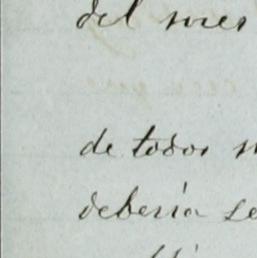 del mes
de todos
debería se